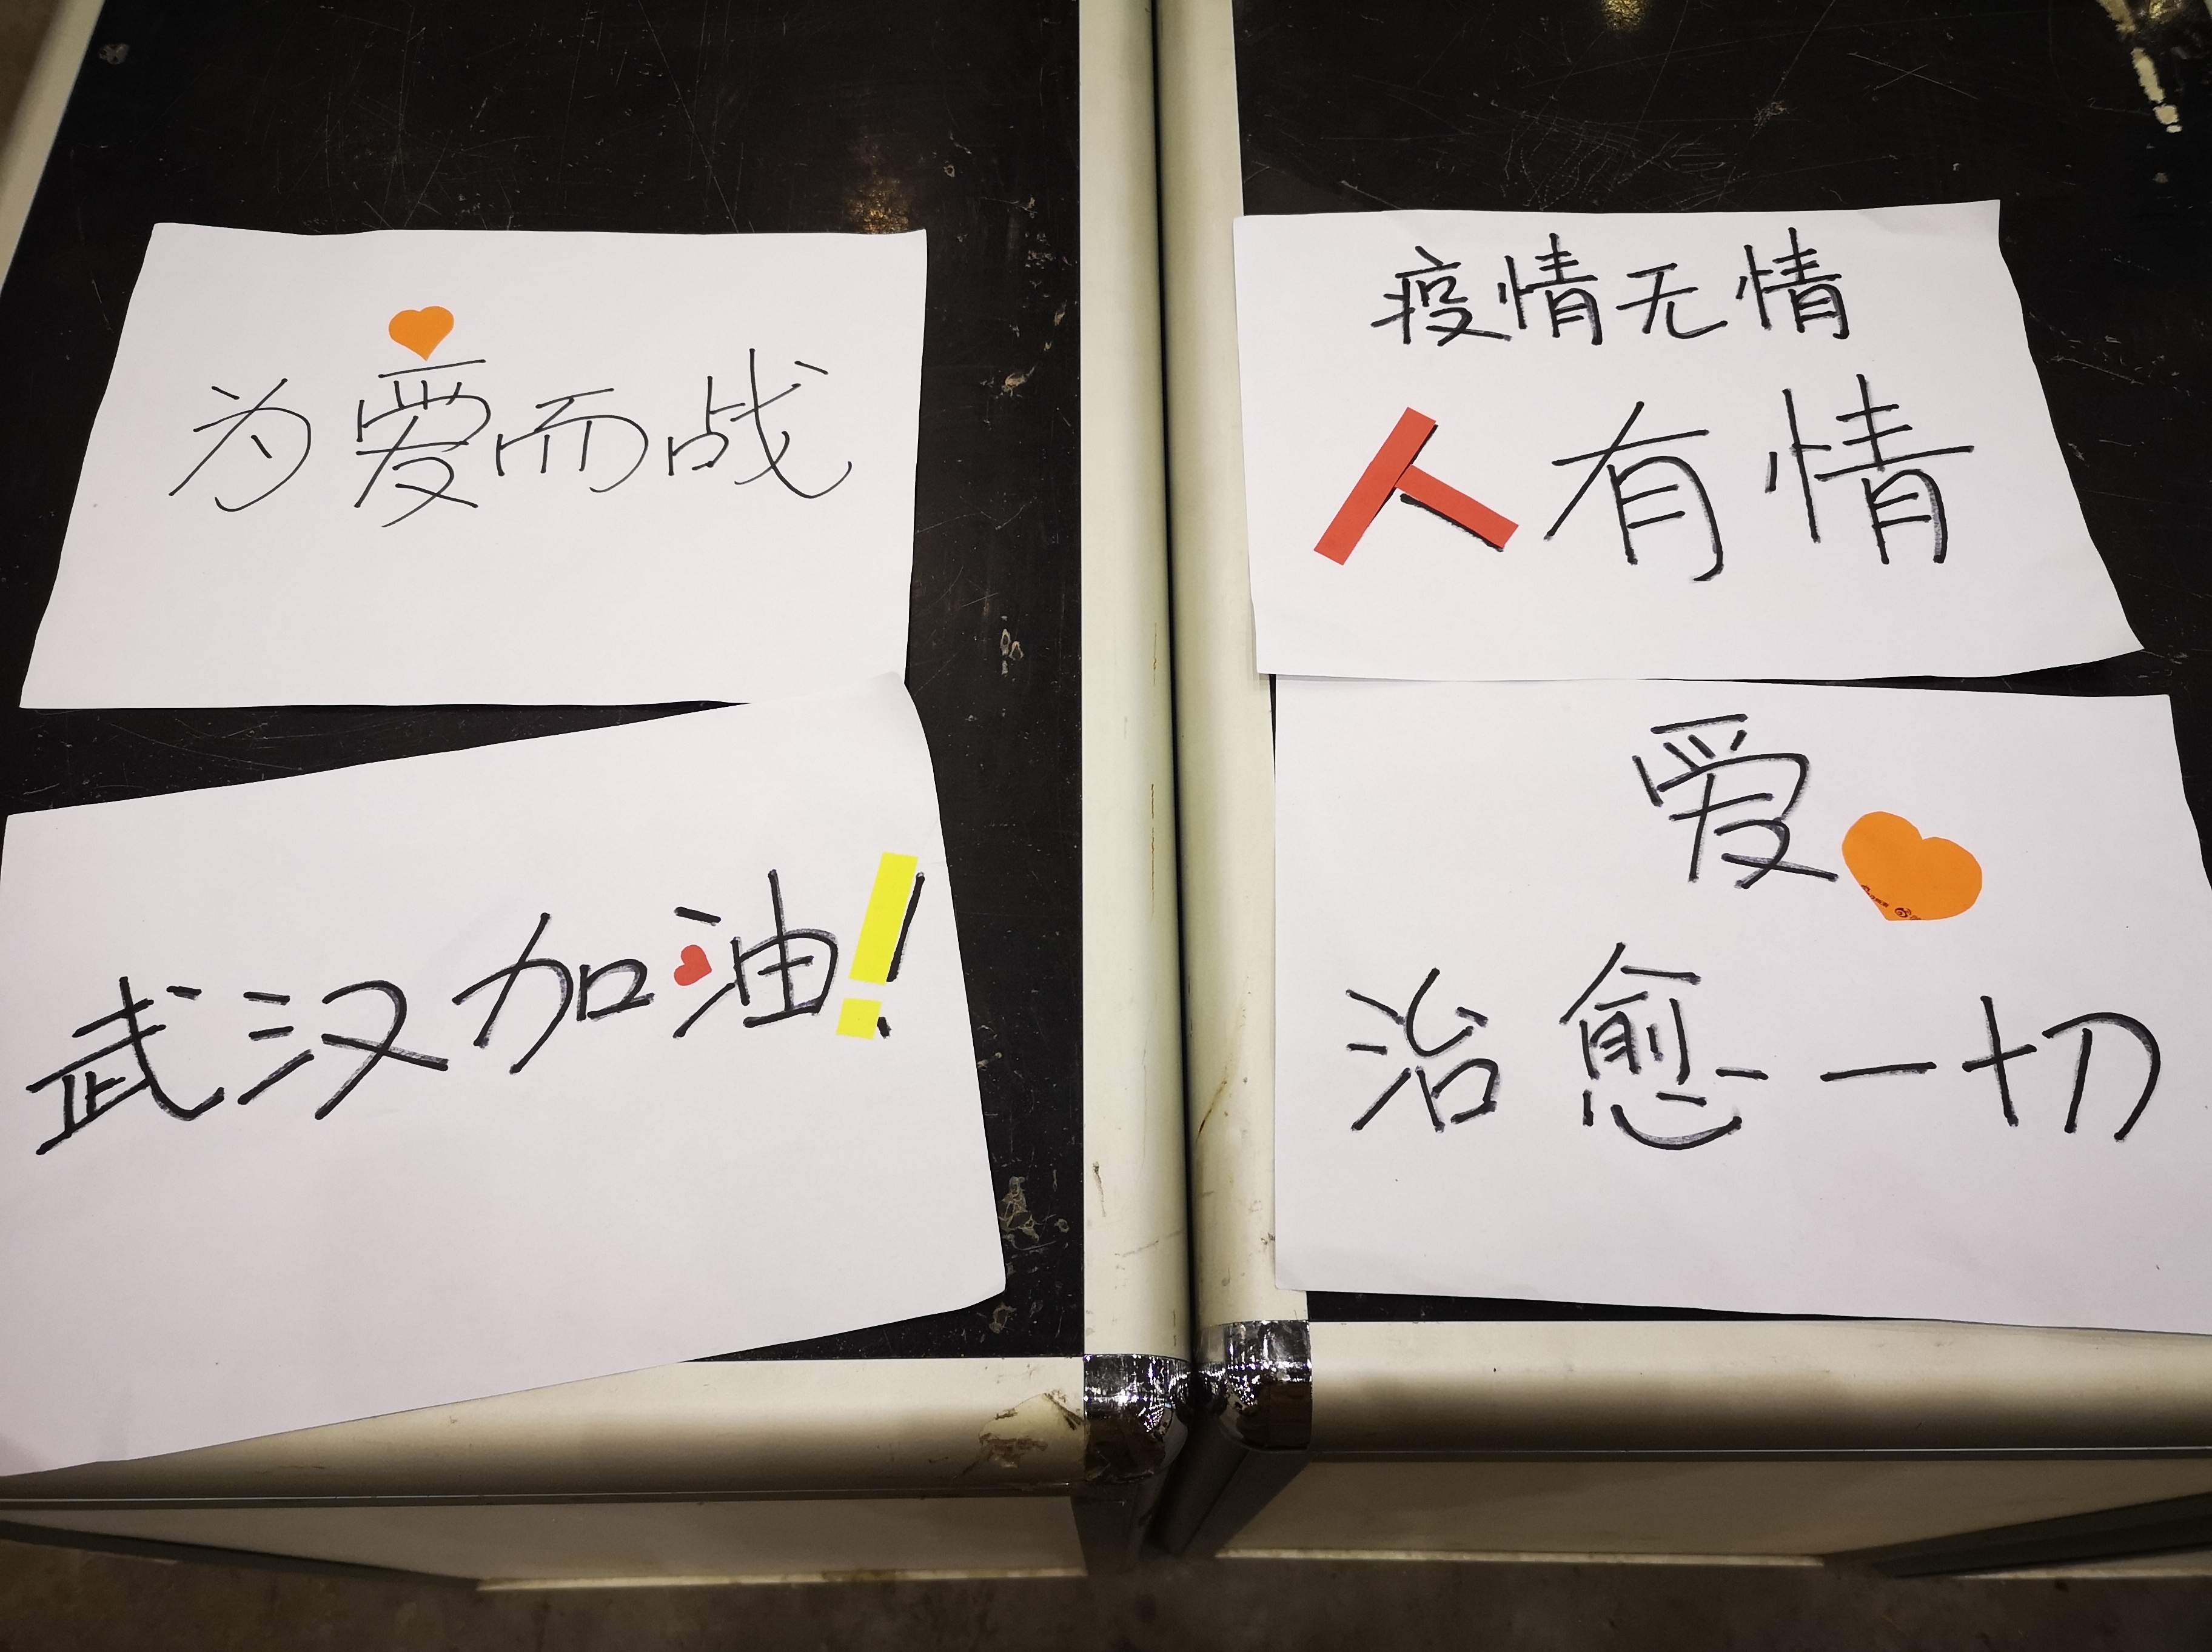 为爱而战
武汉加油！
疫情无情
人有情
爱
治愈一切